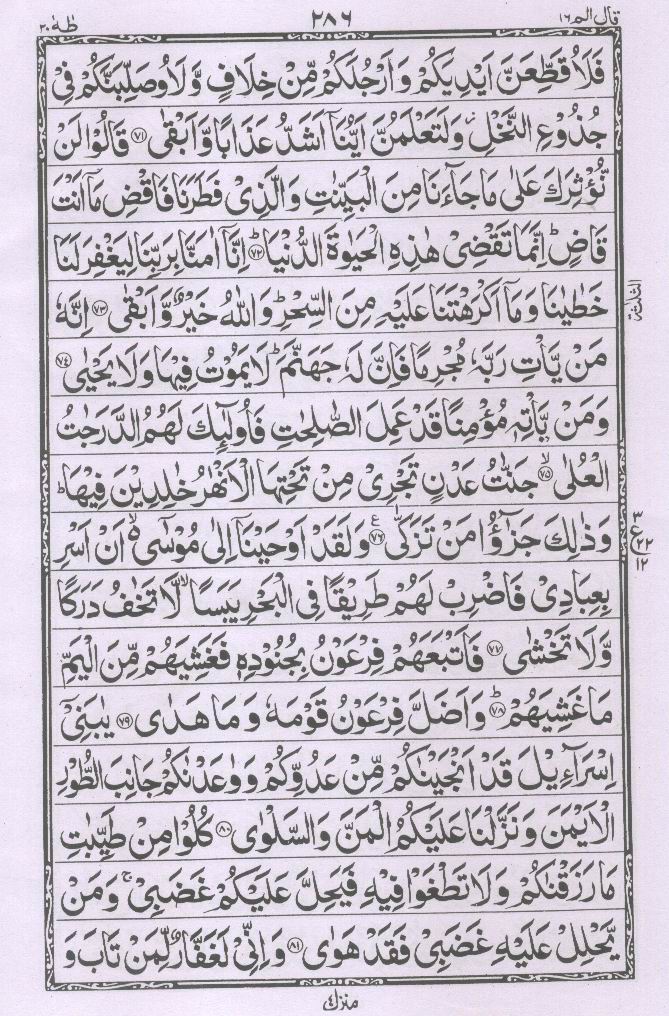 قال الم ١٦ ٢٨٦ طٰهٰ ٢٠
فَلَاُقَطِّعَنَّ اَيْدِيَكُمْ وَاَرْجُلَكُمْ مِّنْ خِلَافٍ وَّلَاُوصَلِّبَنَّكُمْ فِىْ
جُذُوْعِ النَّخْلِ ۫ وَلَتَعْلَمُنَّ اَيُّنَاۤ اَشَدُّ عَذَابًا وَّاَبْقٰى ﴿٧١﴾ قَالُوْا لَنْ
نُّؤْثِرَكَ عَلٰى مَا جَآءَنَا مِنَ الْبَيِّنٰتِ وَالَّذِىْ فَطَرَنَا فَاقْضِ مَاۤ اَنْتَ
قَاضٍ ؕ اِنَّمَا تَقْضِىْ هٰذِهِ الْحَيٰوةَ الدُّنْيَا ؕ ﴿٧٢﴾ اِنَّاۤ اٰمَنَّا بِرَبِّنَا لِيَغْفِرَ لَنَا
خَطٰيٰنَا وَمَاۤ اَكْرَهْتَنَا عَلَيْهِ مِنَ السِّحْرِ ؕ وَاللّٰهُ خَيْرٌ وَّاَبْقٰى ﴿٧٣﴾ اِنَّهٗ
الثلثة
مَنْ يَّاْتِ رَبَّهٗ مُجْرِمًا فَاِنَّ لَهٗ جَهَنَّمَ ؕ لَا يَمُوْتُ فِيْهَا وَلَا يَحْيٰى ﴿٧٤﴾
وَمَنْ يَّاْتِهٖ مُؤْمِنًا قَدْ عَمِلَ الصّٰلِحٰتِ فَاُولٰٓئِكَ لَهُمُ الدَّرَجٰتُ
الْعُلٰى ۙ ﴿٧٥﴾ جَنّٰتُ عَدْنٍ تَجْرِىْ مِنْ تَحْتِهَا الْاَنْهٰرُ خٰلِدِيْنَ فِيْهَا ؕ
وَذٰلِكَ جَزٰٓؤُا مَنْ تَزَكّٰى ﴿٧٦﴾ ع وَلَقَدْ اَوْحَيْنَاۤ اِلٰى مُوْسٰٓى ۙ اَنْ اَسْرِ
٣
ع
٢٢
١٢
بِعِبَادِىْ فَاضْرِبْ لَهُمْ طَرِيْقًا فِى الْبَحْرِ يَبَسًا ۙ لَّا تَخٰفُ دَرَكًا
وَّلَا تَخْشٰى ﴿٧٧﴾ فَاَتْبَعَهُمْ فِرْعَوْنُ بِجُنُوْدِهٖ فَغَشِيَهُمْ مِّنَ الْيَمِّ
مَا غَشِيَهُمْ ؕ ﴿٧٨﴾ وَاَضَلَّ فِرْعَوْنُ قَوْمَهٗ وَمَا هَدٰى ﴿٧٩﴾ يٰبَنِىْۤ
اِسْرَآءِيْلَ قَدْ اَنْجَيْنٰكُمْ مِّنْ عَدُوِّكُمْ وَوٰعَدْنٰكُمْ جَانِبَ الطُّوْرِ
الْاَيْمَنَ وَنَزَّلْنَا عَلَيْكُمُ الْمَنَّ وَالسَّلْوٰى ﴿٨٠﴾ كُلُوْا مِنْ طَيِّبٰتِ
مَا رَزَقْنٰكُمْ وَلَا تَطْغَوْا فِيْهِ فَيَحِلَّ عَلَيْكُمْ غَضَبِىْ ۚ وَمَنْ
يَّحْلِلْ عَلَيْهِ غَضَبِىْ فَقَدْ هَوٰى ﴿٨١﴾ وَاِنِّىْ لَغَفَّارٌ لِّمَنْ تَابَ وَ
منزل